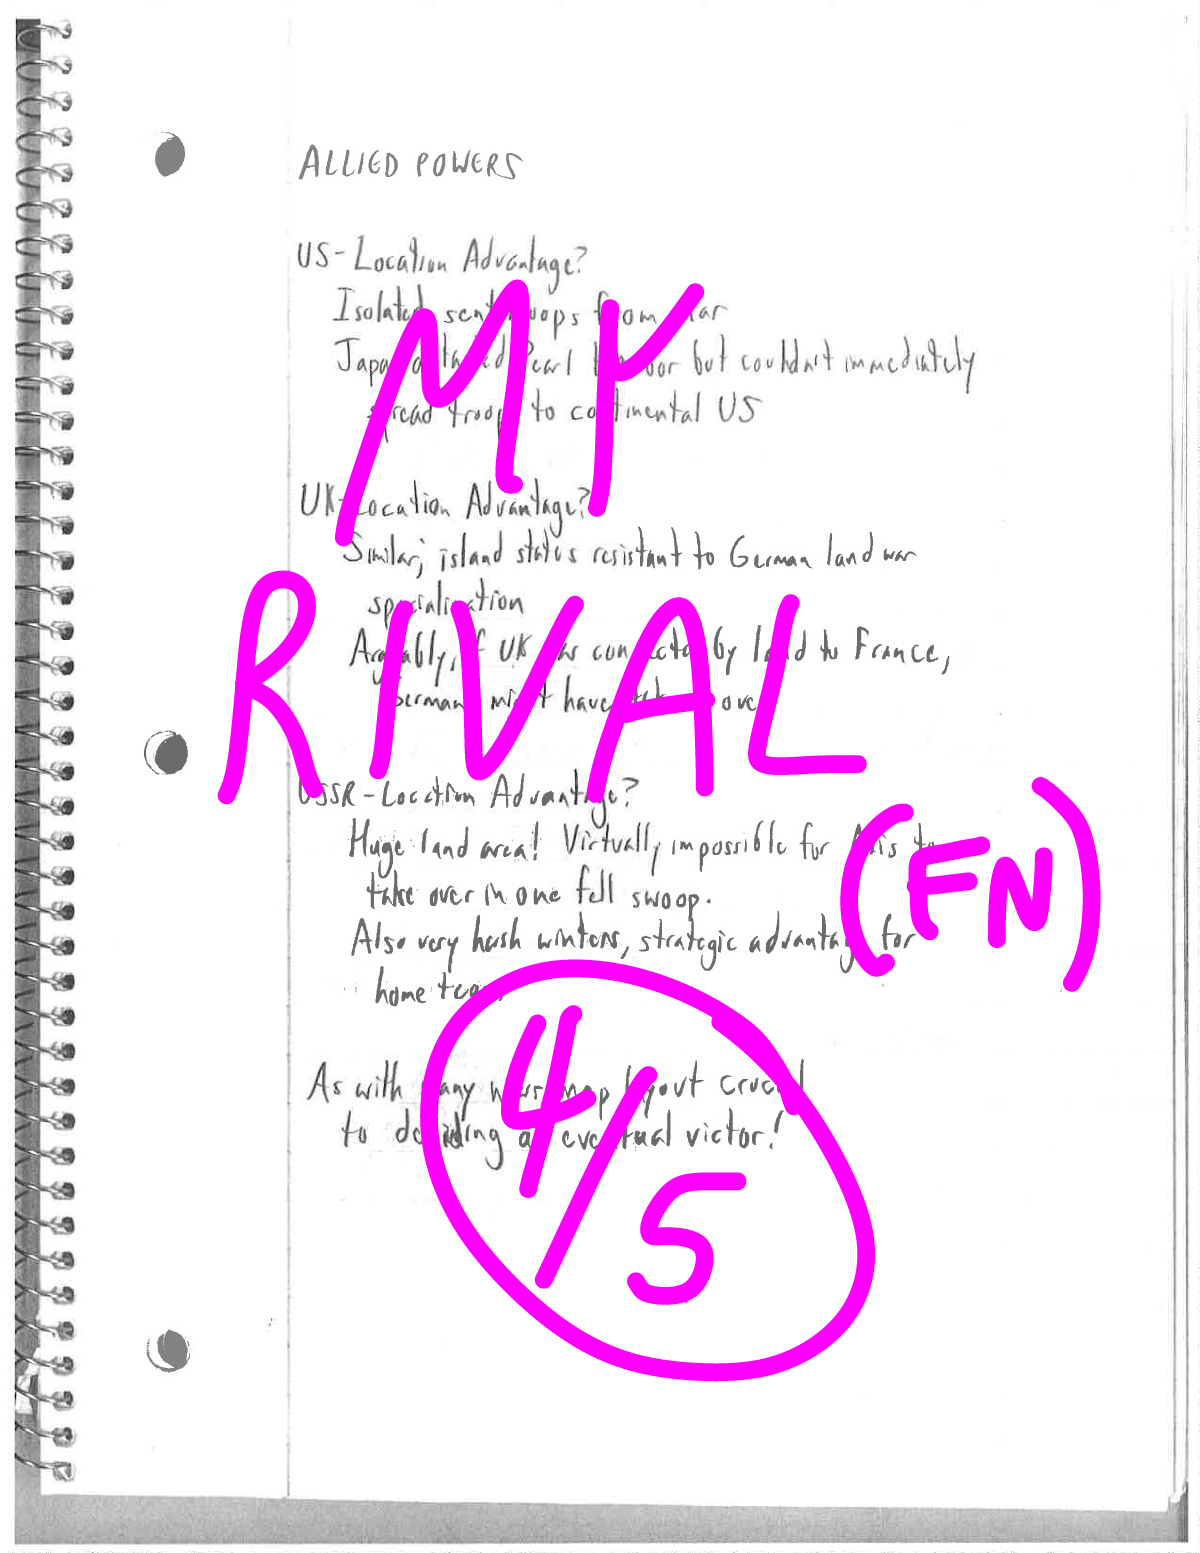 ALLIED POWERS
US-Location Advantage?
Isolated sent troops from war
Japan attacked Pearl Harbor but couldn't immediately
spread troops to continental US
MY
UK-Location Advantage?
Similar; island status resistant to German land war
specialization
RIVAL
Arguably, if UK was connected by land to France,
Germany might have taken over
USSR-Location Advantage?
Huge land area! Virtually impossible for Axis to
take over in one fell swoop.
(FN)
Also very harsh winters, strategic advantage for
home team
As with many wars, map layout crucial
to deciding an eventual victor!
4/5